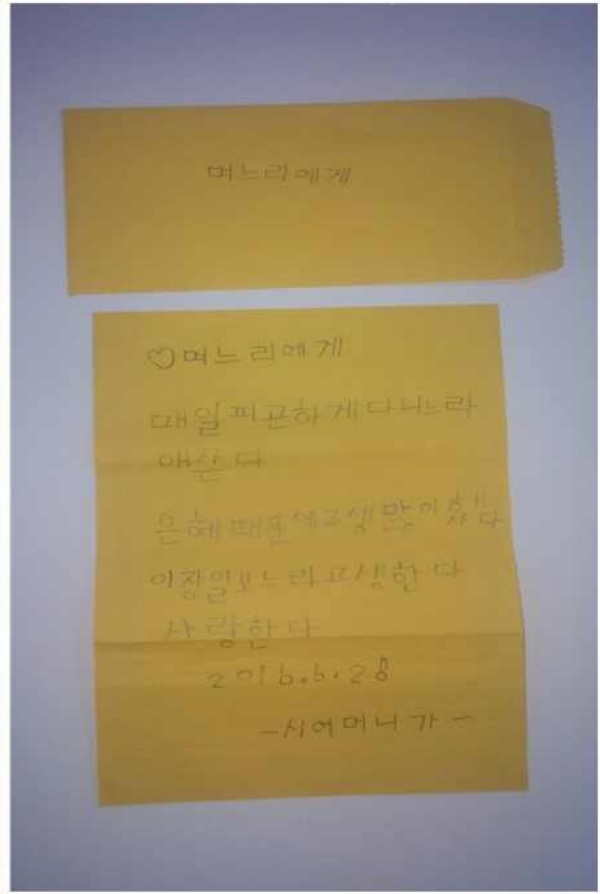 며느리에게
♡며느리에게
매일피곤하게다니느라
애쓴다
은혜때문에고생많이했다
이장일보느리고생한다
사랑한다
2016.6.28
-시어머니가-